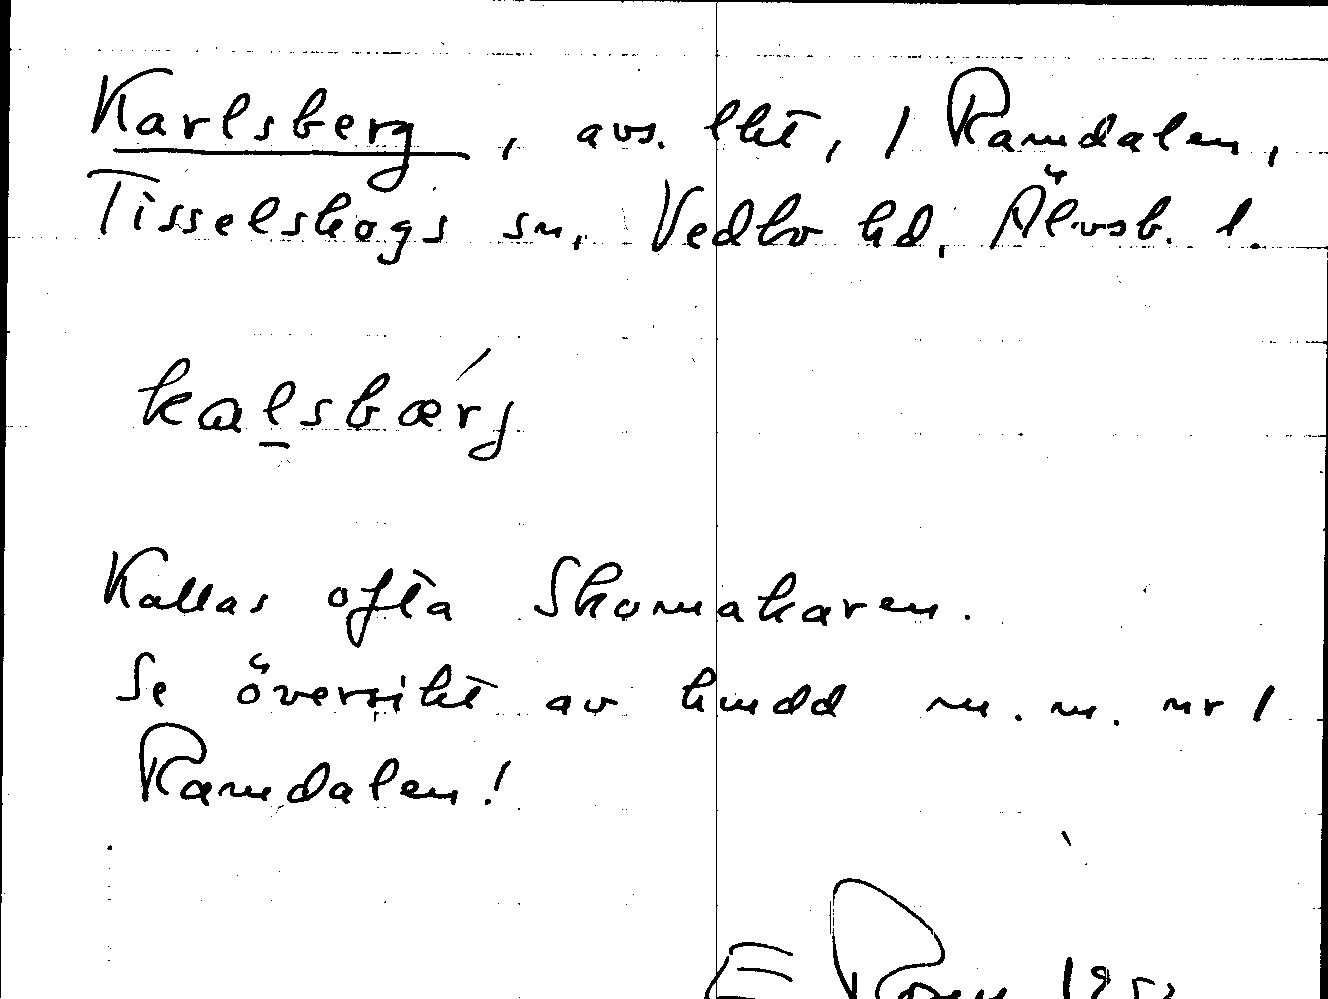 Karlsberg, avs. lht, 1 Ramdalen,
Tisselskogs sn, Vedbo hd, Älvsb. l.
kalsbærj
Kallas ofta Skomakaren.
Se översikt av hmdd m.m. nr 1
Ramdalen!
E